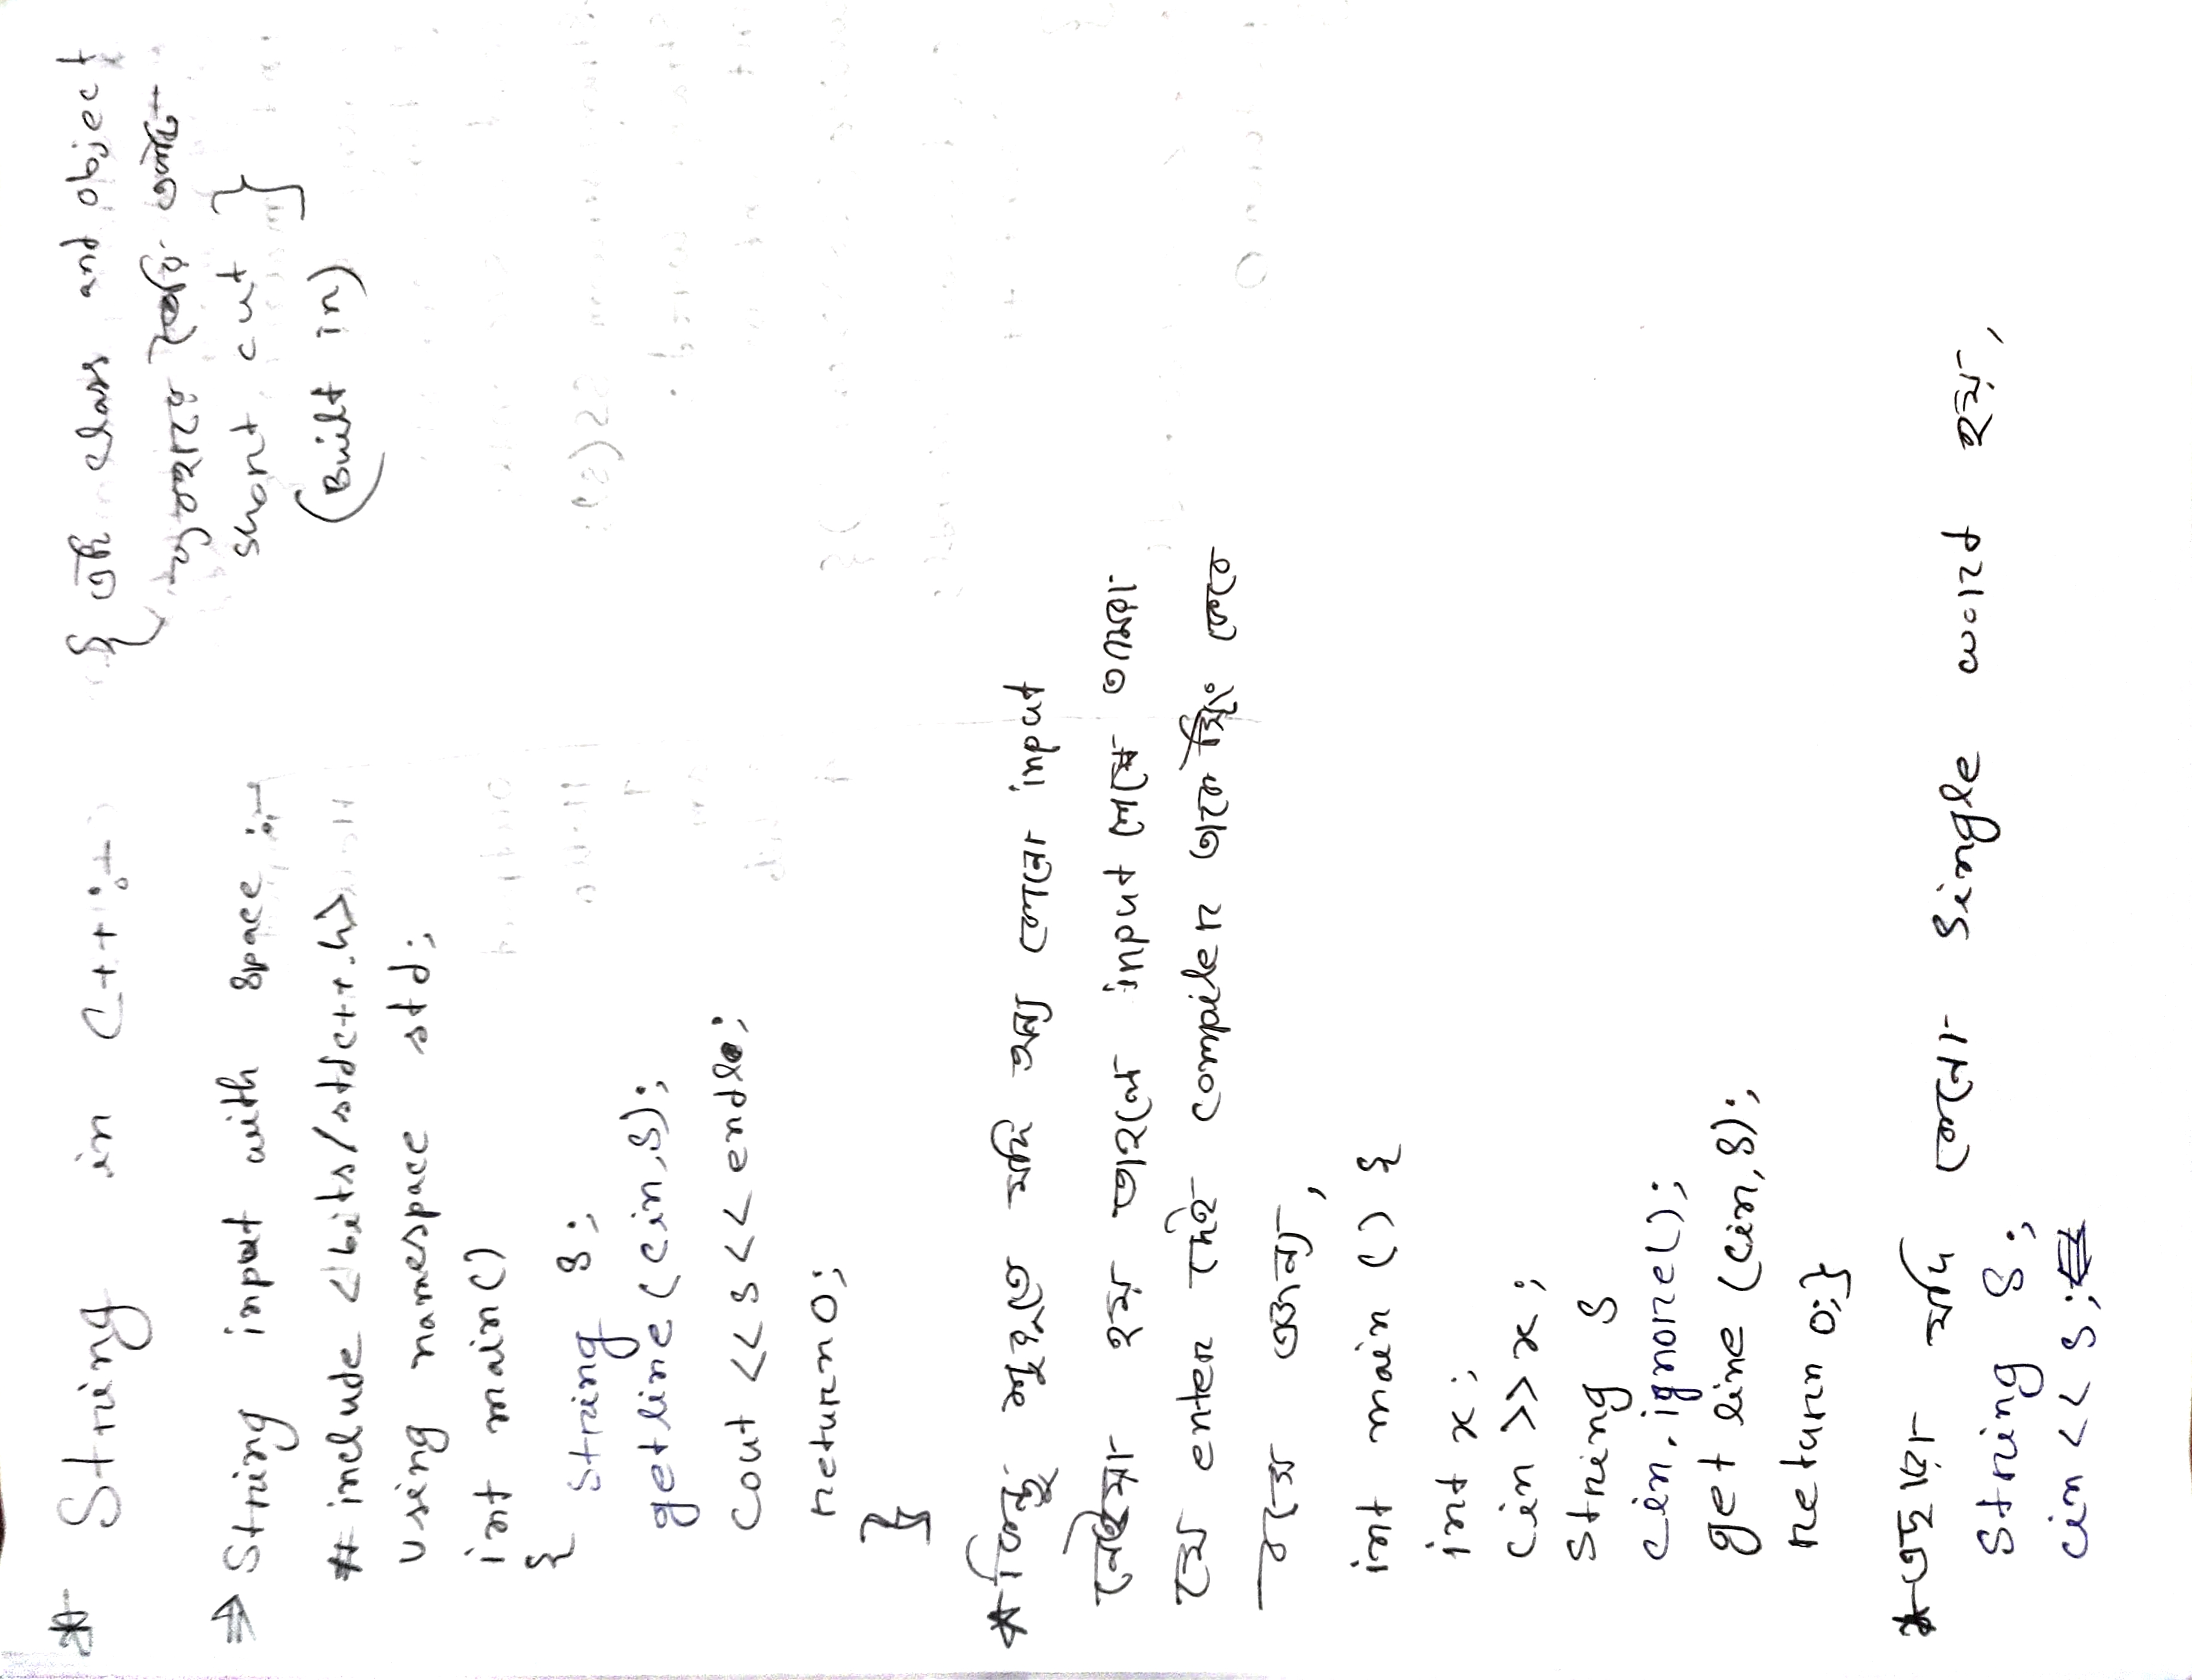 * String in C++ :-
{ এটি class and object
ব্যবহারে তৈরি একটি
short cut }
(Built in)
⇒ String input with space :-
# include <bits/stdc++.h>
using namespace std;
int main()
{
string s;
getline(cin,s);
cout << s << endl;
return 0;
}
* কিন্তু শুরুতে যদি অন্য কোনো input
নেওয়া হয় তাহলে input শেষে আমরা
যে enter দেই compiler তাকে স্ট্রিং ভেবে
বসে এজন্য,
int main () {
int x;
cin >> x;
string s
cin.ignore();
get line (cin, s);
return 0; }
* এছাড়া যদি কোনো single word হয়,
string s;
cin << s;